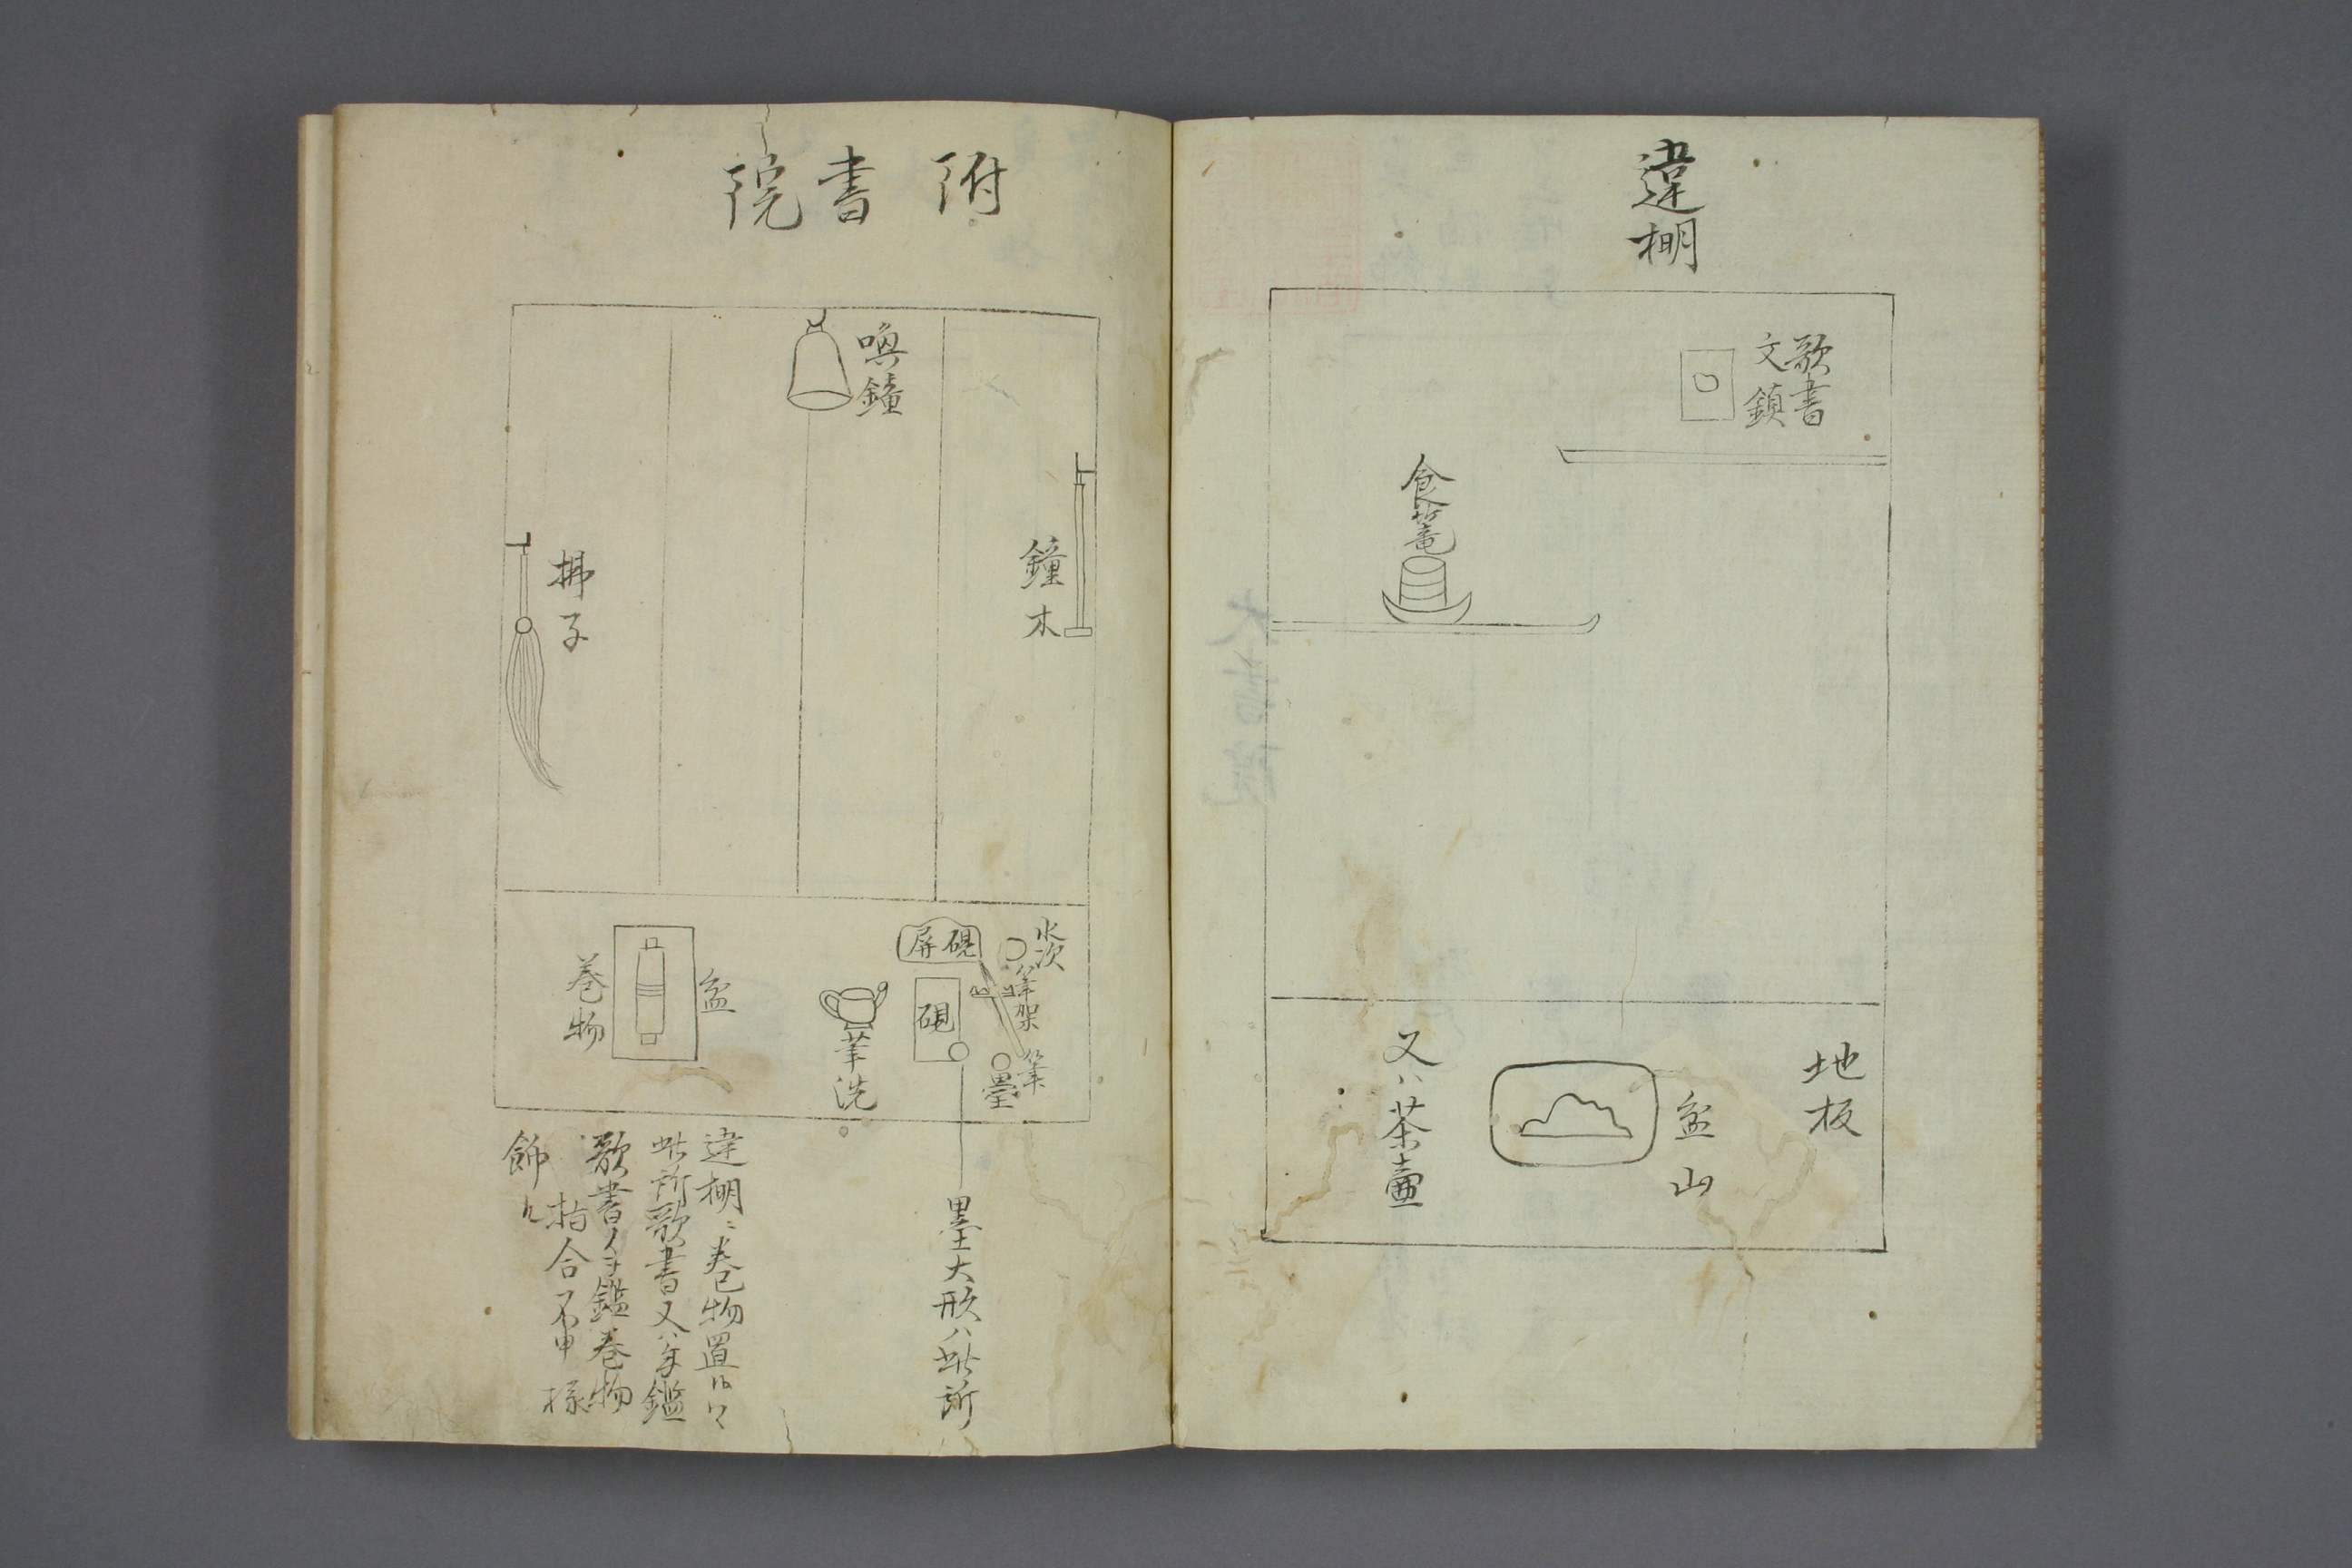 違棚
歌書
文鎮
食篭
地板
盆山
又ハ茶壷
附書院
喚鐘
鐘木
拂子
水次
筆架
筆
墨
硯屏
硯
筆洗
盆
巻物
墨大形ハ此所
違棚ニ巻物置候ハヽ
此所歌書又ハ手鑑
歌書手鑑巻物
指合不申様
飾ル